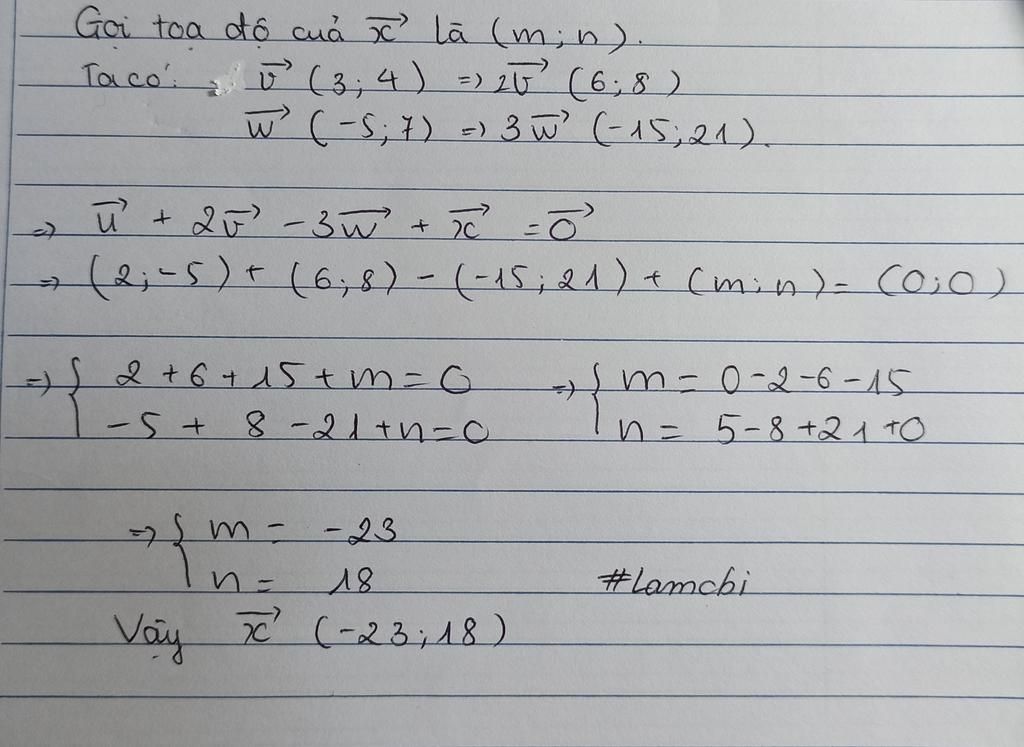 Gọi toạ độ cuả x→ là (m;n).
Ta có: v→ (3;4) => 2v→ (6;8)
w→ (-5;7) => 3w→ (-15;21).
=> u→ + 2v→ - 3w→ + x→ = 0→
=> (2;-5) + (6;8) - (-15;21) + (m;n) = (0;0)
=> { 2+6+15+m=0 => { m = 0-2-6-15
-5 + 8 -21+n=0 n = 5-8+21+0
=> { m = -23
n = 18 #lamchi
Vậy x→ (-23;18)